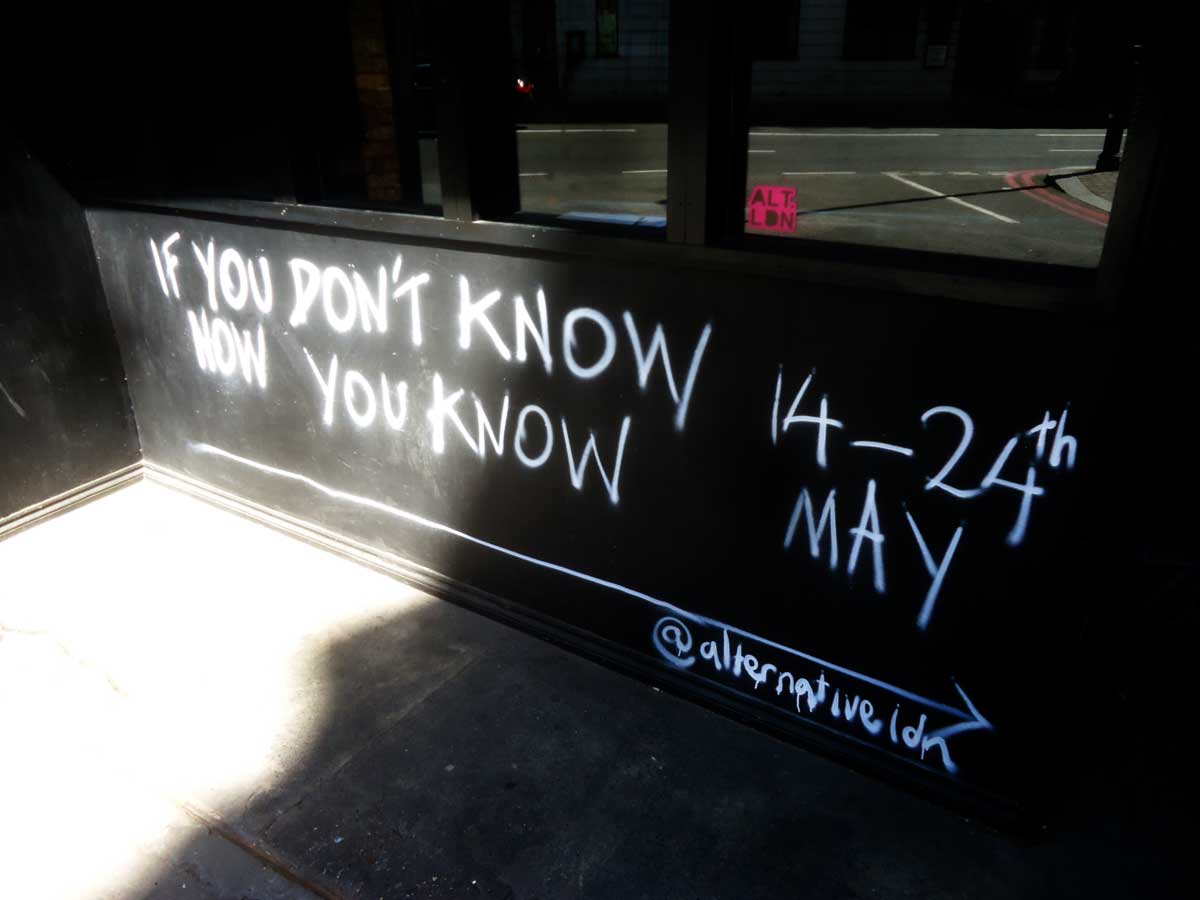 ALT.
LDN
IF YOU DON'T KNOW
NOW YOU KNOW
14-24th
MAY
@alternativeldn